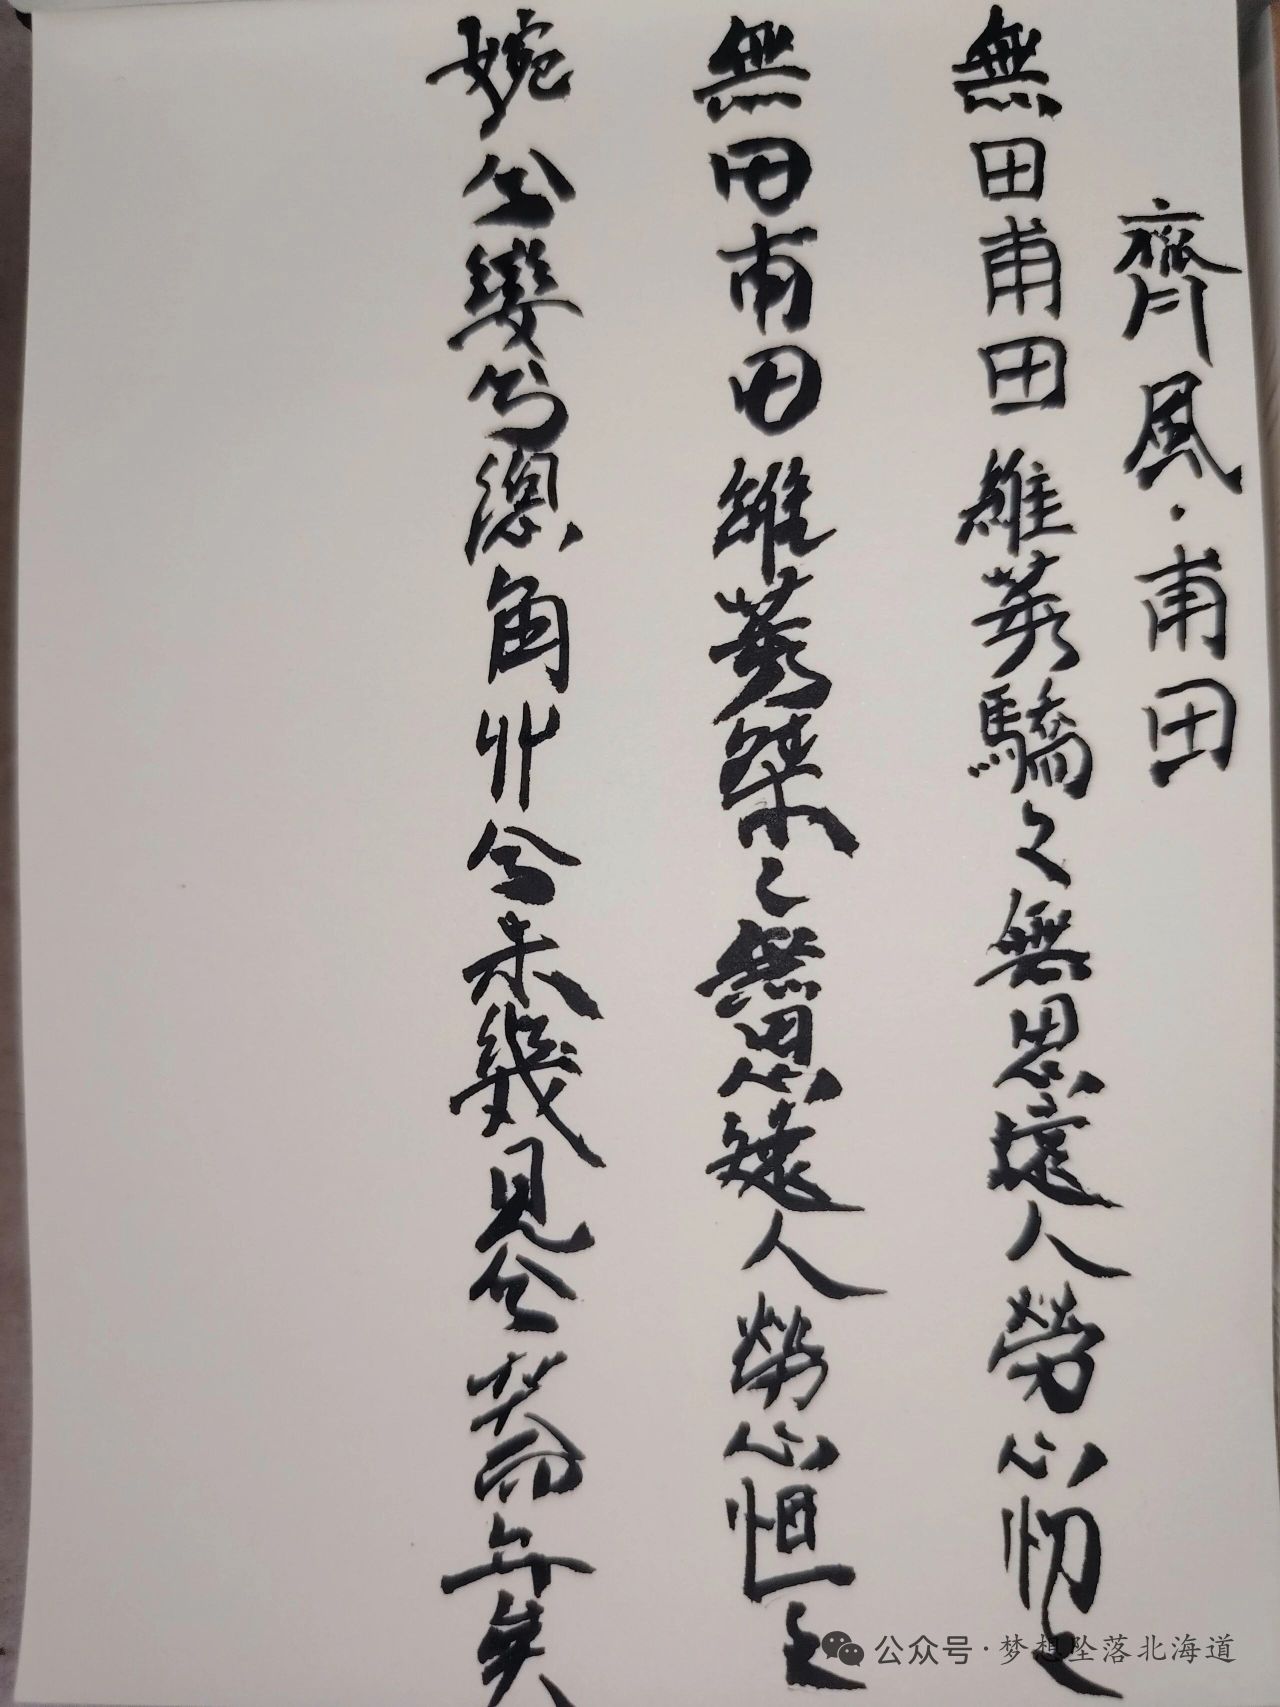 齊風·甫田
無田甫田維莠驕々無思遠人勞心忉々
無田甫田維莠桀々無思遠人勞心怛々
婉兮孌兮總角丱兮未幾見兮突而弁矣
公众号·梦想坠落北海道